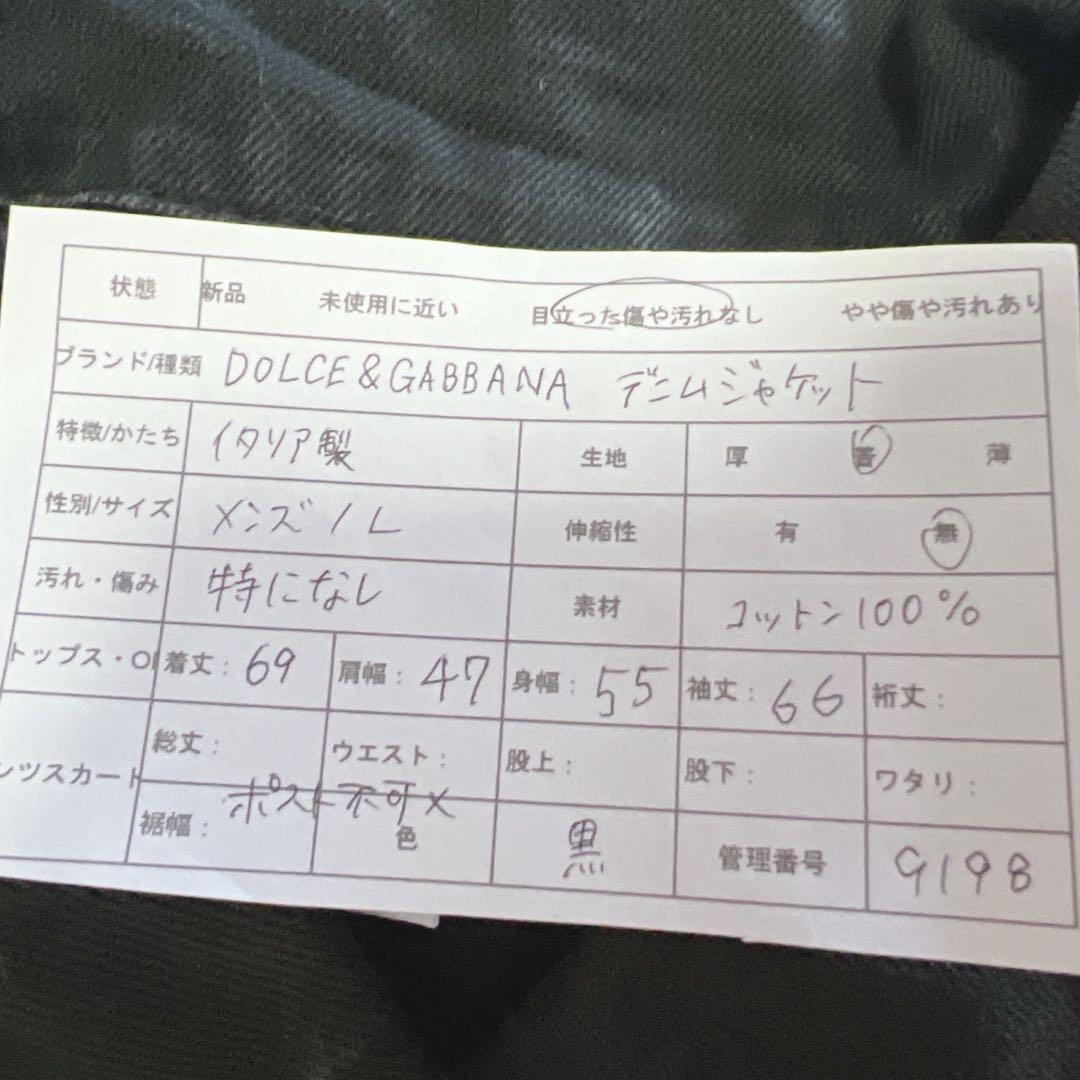 状態 新品 未使用に近い 目立った傷や汚れなし やや傷や汚れあり
ブランド/種類 DOLCE&GABBANA デニムジャケット
特徴/かたち イタリア製 生地 厚 普 薄
性別/サイズ メンズ/L 伸縮性 有 無
汚れ・傷み 特になし 素材 コットン100%
トップス・O 着丈: 69 肩幅: 47 身幅: 55 袖丈: 66 裄丈:
ンツスカート 総丈: ウエスト: 股上: 股下: ワタリ:
ポスト不可×
裾幅: 色 黒 管理番号 9198